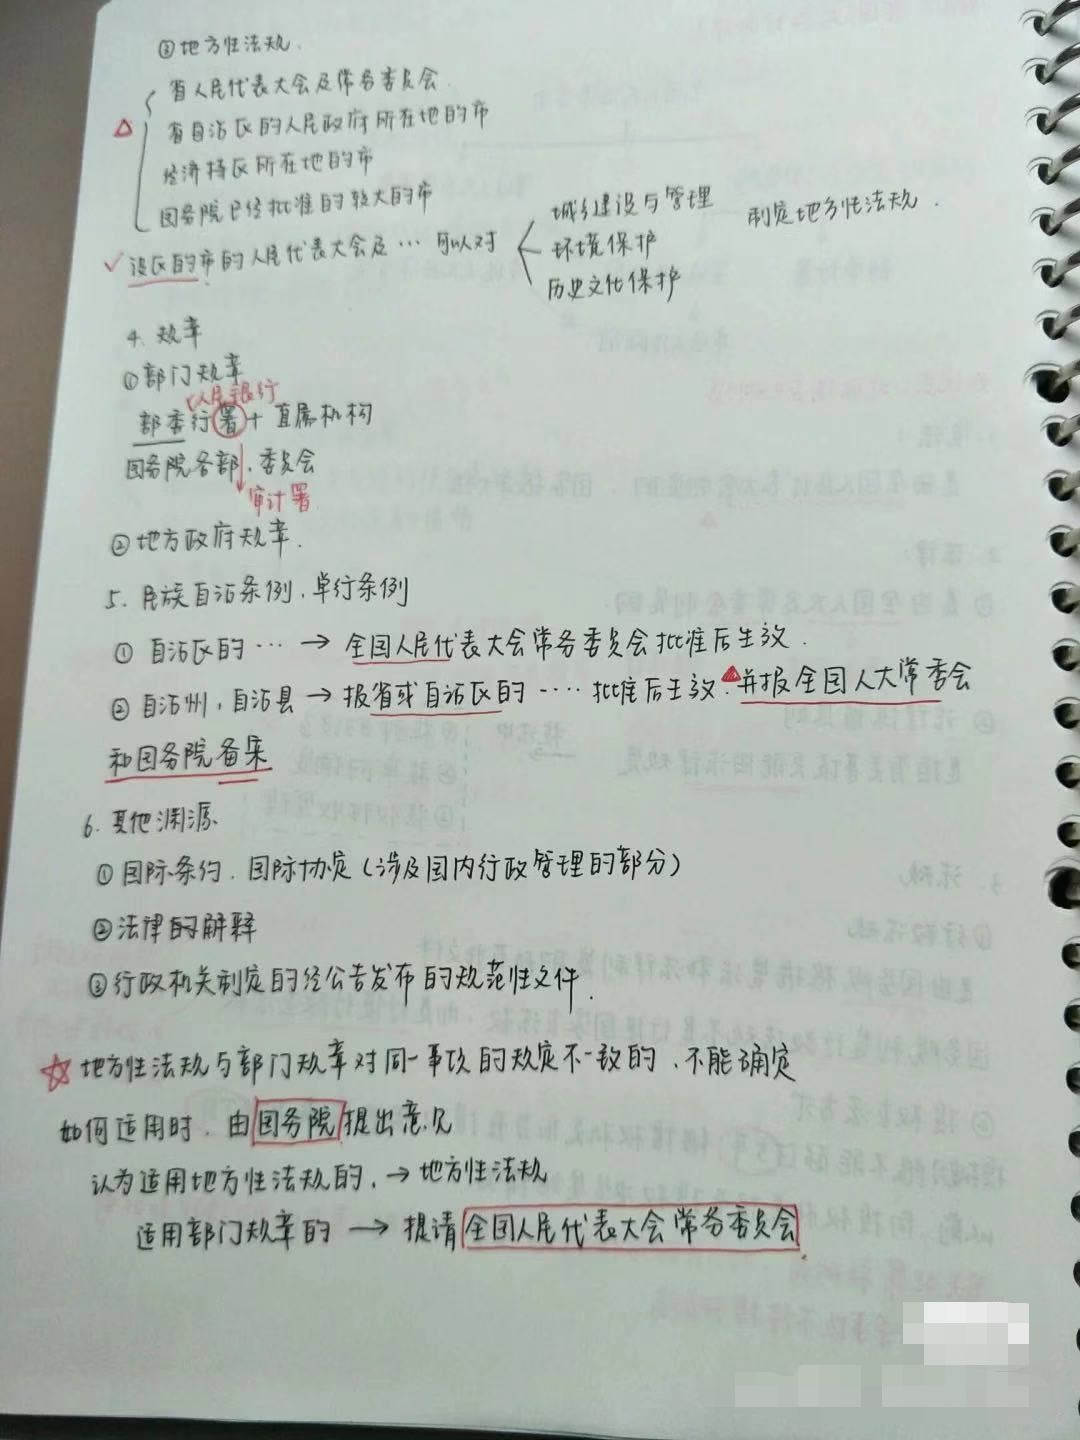 ③地方性法规.
省人民代表大会及常务委员会.
省自治区的人民政府所在地的市
经济特区所在地的市
国务院已经批准的较大的市
设区的市的人民代表大会及… 可以对
城乡建设与管理
环境保护
历史文化保护
制定地方性法规.
4. 规章
①部门规章
人民银行
部委行署+直属机构
国务院各部、委员会
审计署
②地方政府规章.
5. 民族自治条例、单行条例
① 自治区的… → 全国人民代表大会常务委员会批准后生效.
② 自治州、自治县 → 报省或自治区的…. 批准后生效.并报全国人大常委会
和国务院备案
6. 其他渊源
①国际条约.国际协定(涉及国内行政管理的部分)
②法律的解释
③行政机关制定的经公告发布的规范性文件.
地方性法规与部门规章对同一事项的规定不一致的、不能确定
如何适用时.由国务院提出意见
认为适用地方性法规的,→地方性法规
适用部门规章的 → 提请全国人民代表大会常务委员会.